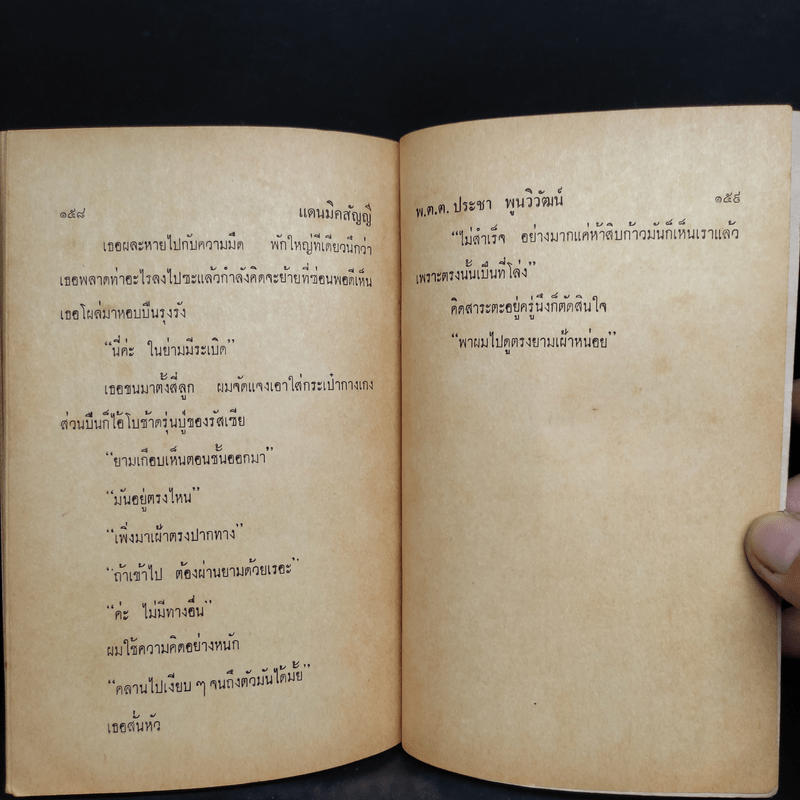 ๑๕๘ แดนมิคสัญญี
เธอผละหายไปกับความมืด พักใหญ่ทีเดียวนึกว่า
เธอพลาดท่าอะไรลงไปซะแล้วกำลังคิดจะย้ายที่ซ่อนพอดีเห็น
เธอโผล่มาหอบปืนรุงรัง
“นี่ค่ะ ในย่ามมีระเบิด”
เธอขนมาตั้งสี่ลูก ผมจัดแจงเอาใส่กระเป๋ากางเกง
ส่วนปืนก็ไอ้โบซ้าดรุ่นบู่ของรัสเซีย
“ยามเกือบเห็นตอนชั้นออกมา”
“มันอยู่ตรงไหน”
“เพิ่งมาเฝ้าตรงปากทาง”
“ถ้าเข้าไป ต้องผ่านยามด้วยเรอะ”
“ค่ะ ไม่มีทางอื่น”
ผมใช้ความคิดอย่างหนัก
“คลานไปเงียบ ๆ จนถึงตัวมันได้มั้ย”
เธอสั่นหัว
พ.ต.ต. ประชา พูนวิวัฒน์ ๑๕๙
“ไม่สำเร็จ อย่างมากแค่ห้าสิบก้าวมันก็เห็นเราแล้ว
เพราะตรงนั้นเป็นที่โล่ง”
คิดสาระตะอยู่ครู่นึงก็ตัดสินใจ
“พาผมไปดูตรงยามเฝ้าหน่อย”